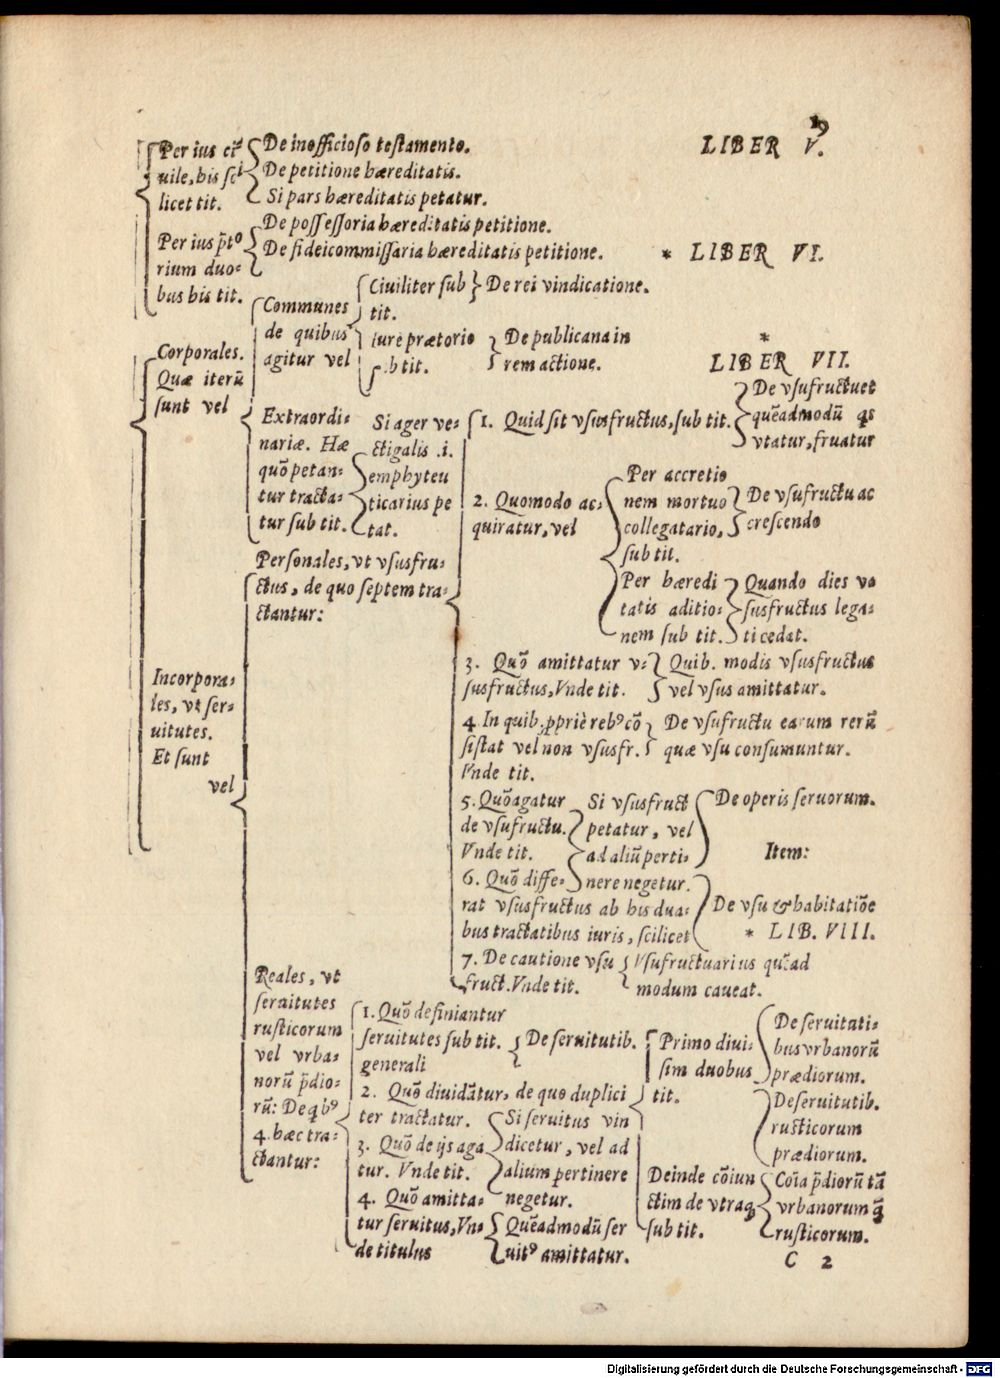 LIBER V.
Per ius ci-
uile, bis sci
licet tit.
De inofficioso testamento.
De petitione hæreditatis.
Si pars hæreditatis petatur.
Per ius p̄to
rium duo-
bus bis tit.
De possessoria hæreditatis petitione.
De fideicommissaria hæreditatis petitione.
* LIBER VI.
Corporales.
Quæ iterū
sunt vel
Communes
de quibus
agitur vel
Ciuiliter sub
tit.
De rei vindicatione.
Iure prætorio
sub tit.
De publicana in
rem actione.
*
LIBER VII.
Extraordi-
nariæ. Hæ
quō petan-
tur tracta-
tur sub tit.
Si ager ve-
ctigalis .i.
emphyteu
ticarius pe
tat.
Incorpora-
les, vt ser-
uitutes.
Et sunt
vel
Personales, vt vsusfru-
ctus, de quo septem tra-
ctantur:
1. Quid sit vsusfructus, sub tit.
De vsufructu et
quēadmodū qs
vtatur, fruatur
2. Quomodo ac-
quiratur, vel
Per accretio
nem mortuo
collegatario,
sub tit.
De vsufructu ac
crescendo
Per hæredi
tatis aditio-
nem sub tit.
Quando dies vs
susfructus lega-
ti cedat.
3. Quō amittatur v-
susfructus, Vnde tit.
Quib. modis vsusfructus
vel vsus amittatur.
4 In quib. ꝓpriè rebꝰ cō
sistat vel non vsusfr.
Vnde tit.
De vsufructu earum rerū
quæ vsu consumuntur.
5. Quō agatur
de vsufructu.
Vnde tit.
Si vsusfruct
petatur, vel
ad aliū perti-
nere negetur.
De operis seruorum.
Item:
6. Quō diffe-
rat vsusfructus ab his dua-
bus tractatibus iuris, scilicet
De vsu & habitatiōe
* LIB. VIII.
7. De cautione vsu
fruct. Vnde tit.
Vsufructuarius quēad
modum caueat.
Reales, vt
seruitutes
rusticorum
vel vrba-
norū p̄dio-
rū: De qbꝰ
4. hæc tra-
ctantur:
1. Quō definiantur
seruitutes sub tit.
generali
De seruitutib.
2. Quō diuidātur, de quo duplici
ter tractatur.
Primo diui-
sim duobus
tit.
De seruitati-
bus vrbanorū
prædiorum.
De seruitutib.
rusticorum
prædiorum.
Deinde cōiun
ctim de vtraq
sub tit.
Coīa p̄diorū tā
vrbanorum q̄
rusticorum.
3. Quō de ijs aga
tur. Vnde tit.
Si seruitus vin
dicetur, vel ad
alium pertinere
negetur.
4. Quō amitta-
tur seruitus, Vn-
de titulus
Quēadmodū ser
uitꝰ amittatur.
C 2
Digitalisierung gefördert durch die Deutsche Forschungsgemeinschaft - DFG